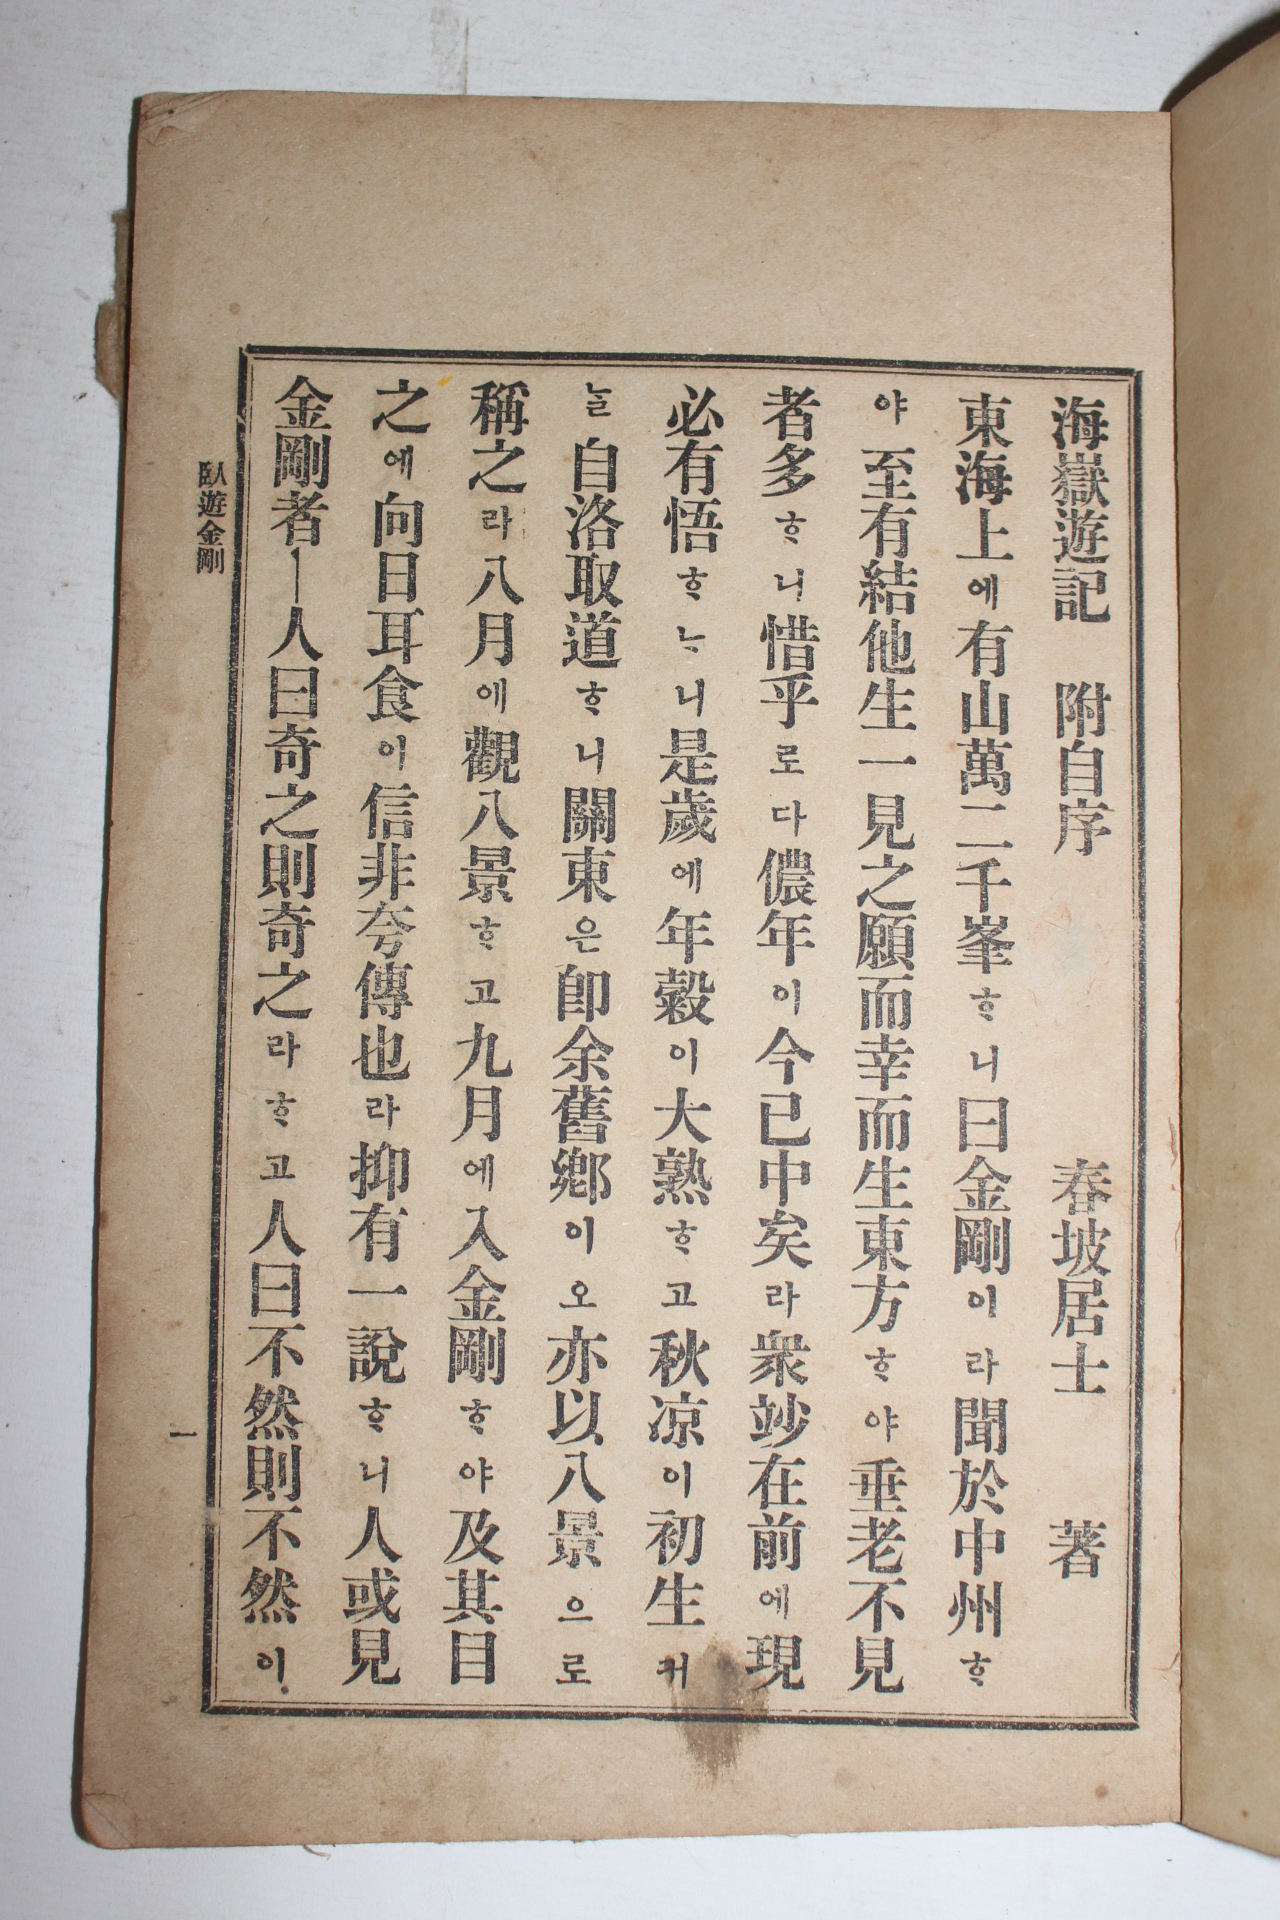 海嶽遊記 附自序 春坡居士 著
東海上에有山萬二千峯ᄒᆞ니曰金剛이라聞於中州ᄒᆞ
야至有結他生一見之願而幸而生東方ᄒᆞ야垂老不見
者多ᄒᆞ니惜乎로다儂年이今已中矣라衆竗在前에現
必有悟ᄒᆞᄂᆞ니是歲에年穀이大熟ᄒᆞ고秋凉이初生커
늘自洛取道ᄒᆞ니關東은卽余舊鄕이오亦以八景으로
稱之라八月에觀八景ᄒᆞ고九月에入金剛ᄒᆞ야及其目
之에向日耳食이信非夸傳也라抑有一說ᄒᆞ니人或見
金剛者ㅣ人曰奇之則奇之라ᄒᆞ고人曰不然則不然이.
臥遊金剛
一